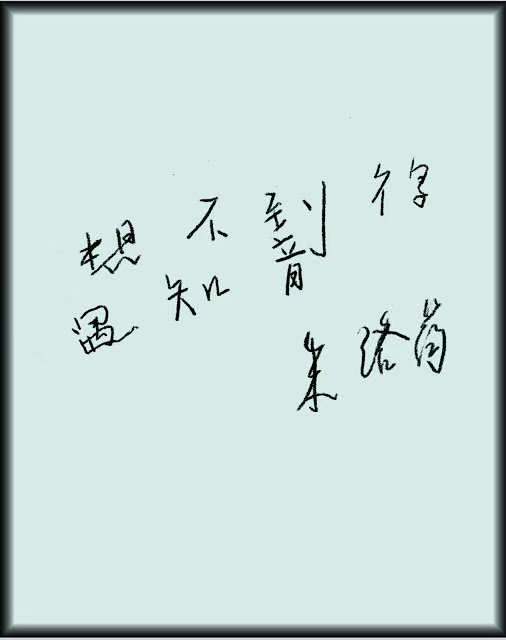 想不到得
遇知音
朱洛筠